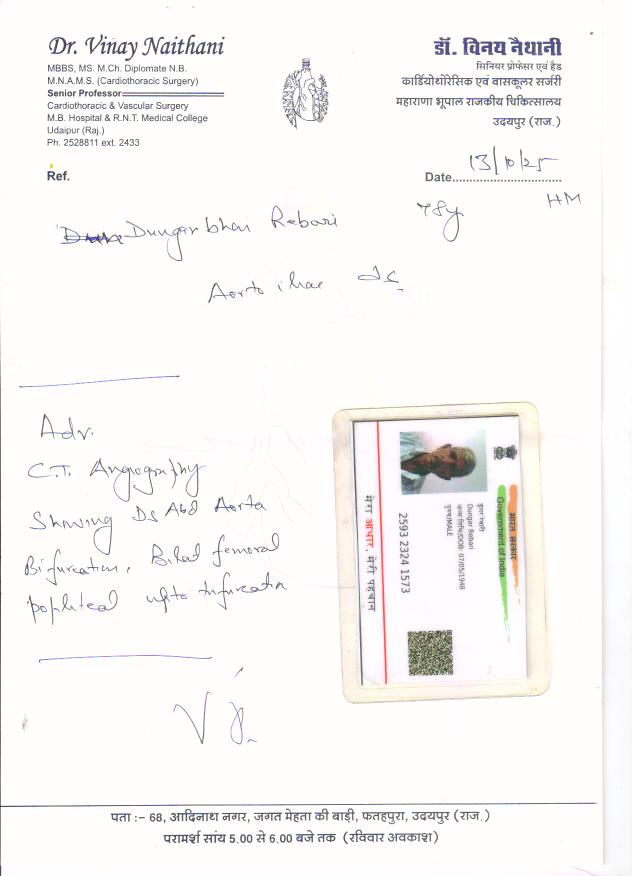 Dr. Vinay Naithani
MBBS, MS. M.Ch. Diplomate N.B.
M.N.A.M.S. (Cardiothoracic Surgery)
Senior Professor
Cardiothoracic & Vascular Surgery
M.B. Hospital & R.N.T. Medical College
Udaipur (Raj.)
Ph. 2528811 ext. 2433
डॉ. विनय नैथानी
सिनियर प्रोफेसर एवं हैड
कार्डियोथोरेसिक एवं वासकूलर सर्जरी
महाराणा भूपाल राजकीय चिकित्सालय
उदयपुर (राज.)
Ref.
Date 13/10/25
Dungarbhai Rebari 78y HM
Aorto iliac
Adv.
C.T. Angiography
Showing Ds Abd Aorta
Bifurcation, Bilat femoral
popliteal upto trifurcation
भारत सरकार
Government of India
Dungar Rebari
जन्म तिथि/DOB: 07/05/1948
पुरुष/MALE
2593 2324 1573
मेरा आधार, मेरी पहचान
पता :– 68, आदिनाथ नगर, जगत मेहता की बाड़ी, फतहपुरा, उदयपुर (राज.)
परामर्श सांय 5.00 से 6.00 बजे तक (रविवार अवकाश)